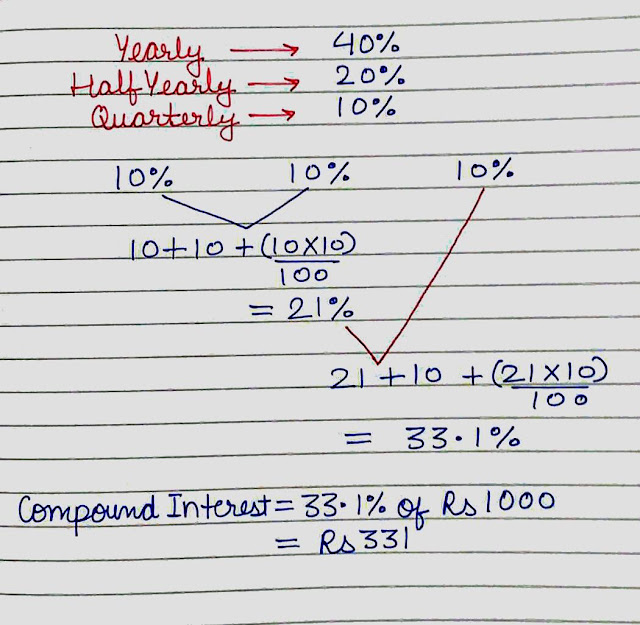 Yearly → 40%
Half Yearly → 20%
Quarterly → 10%
10% 10% 10%
10+10 + (10×10)
100
= 21%
21 + 10 + (21×10)
100
= 33.1%
Compound Interest = 33.1% of Rs 1000
= Rs 331